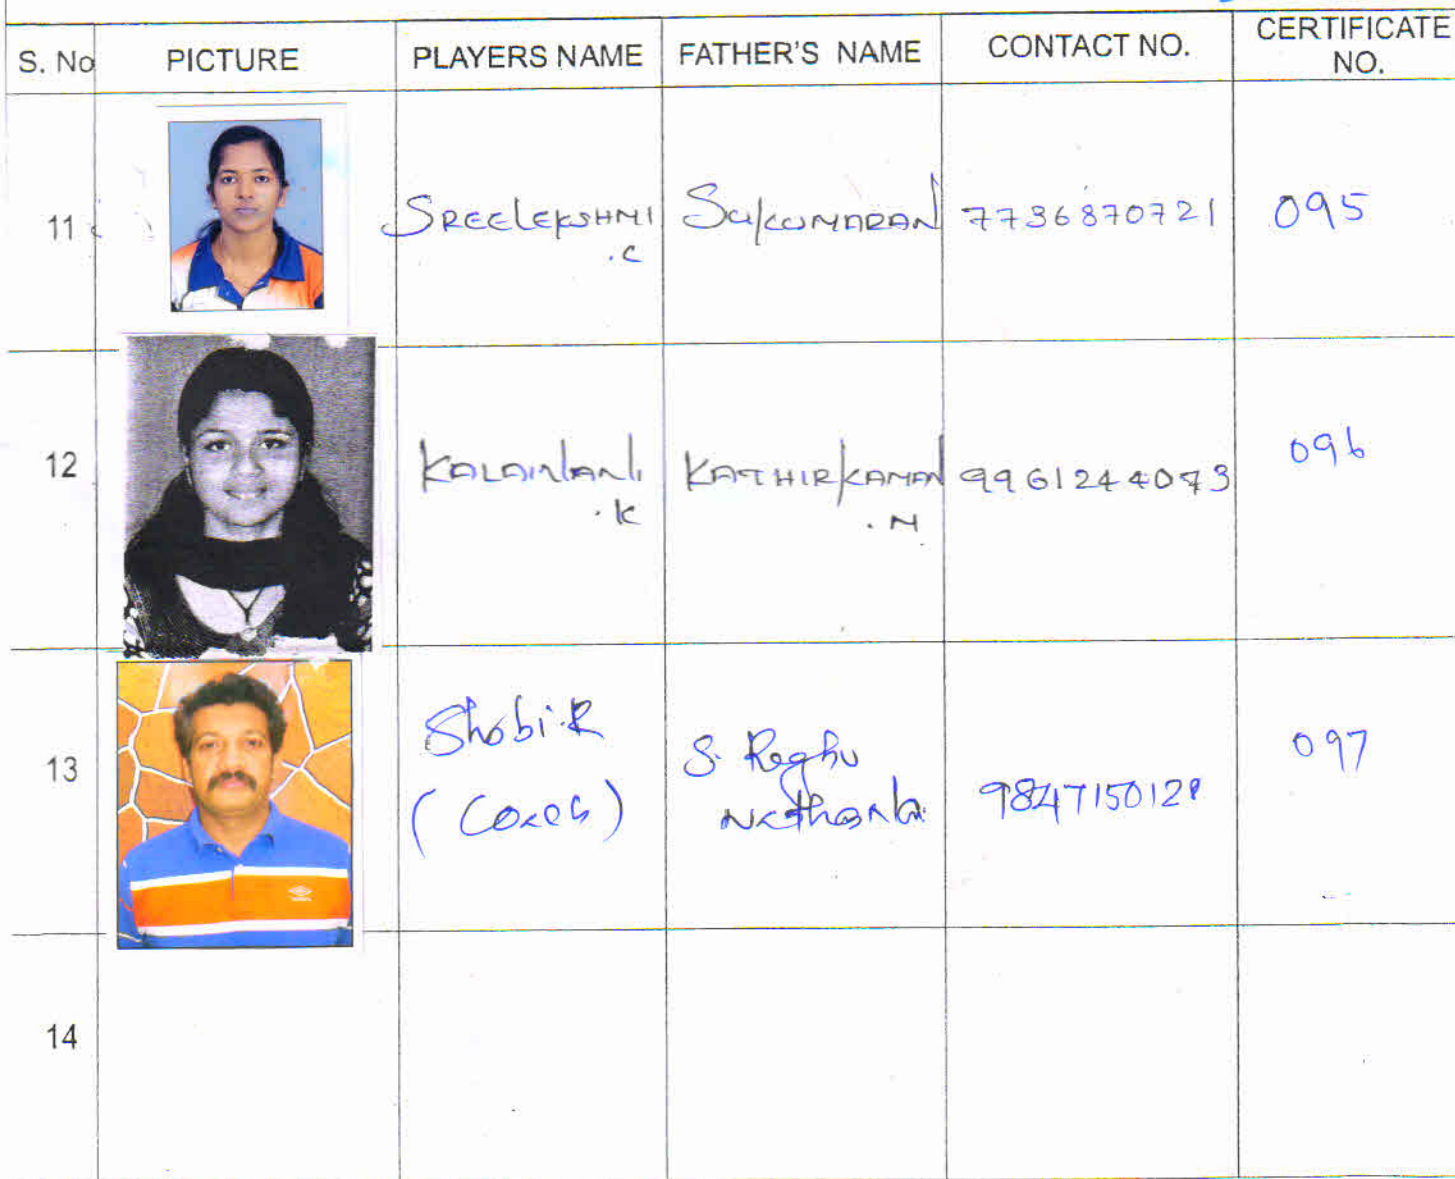 S. No PICTURE PLAYERS NAME FATHER'S NAME CONTACT NO. CERTIFICATE NO.
11 SREELEKSHMI .C SUKUMARAN 7736870721 095
12 KALAIVANI .K KATHIRKAMAN .N 9961244073 096
13 Shobi.R (Coach) S. Reghu 097
14